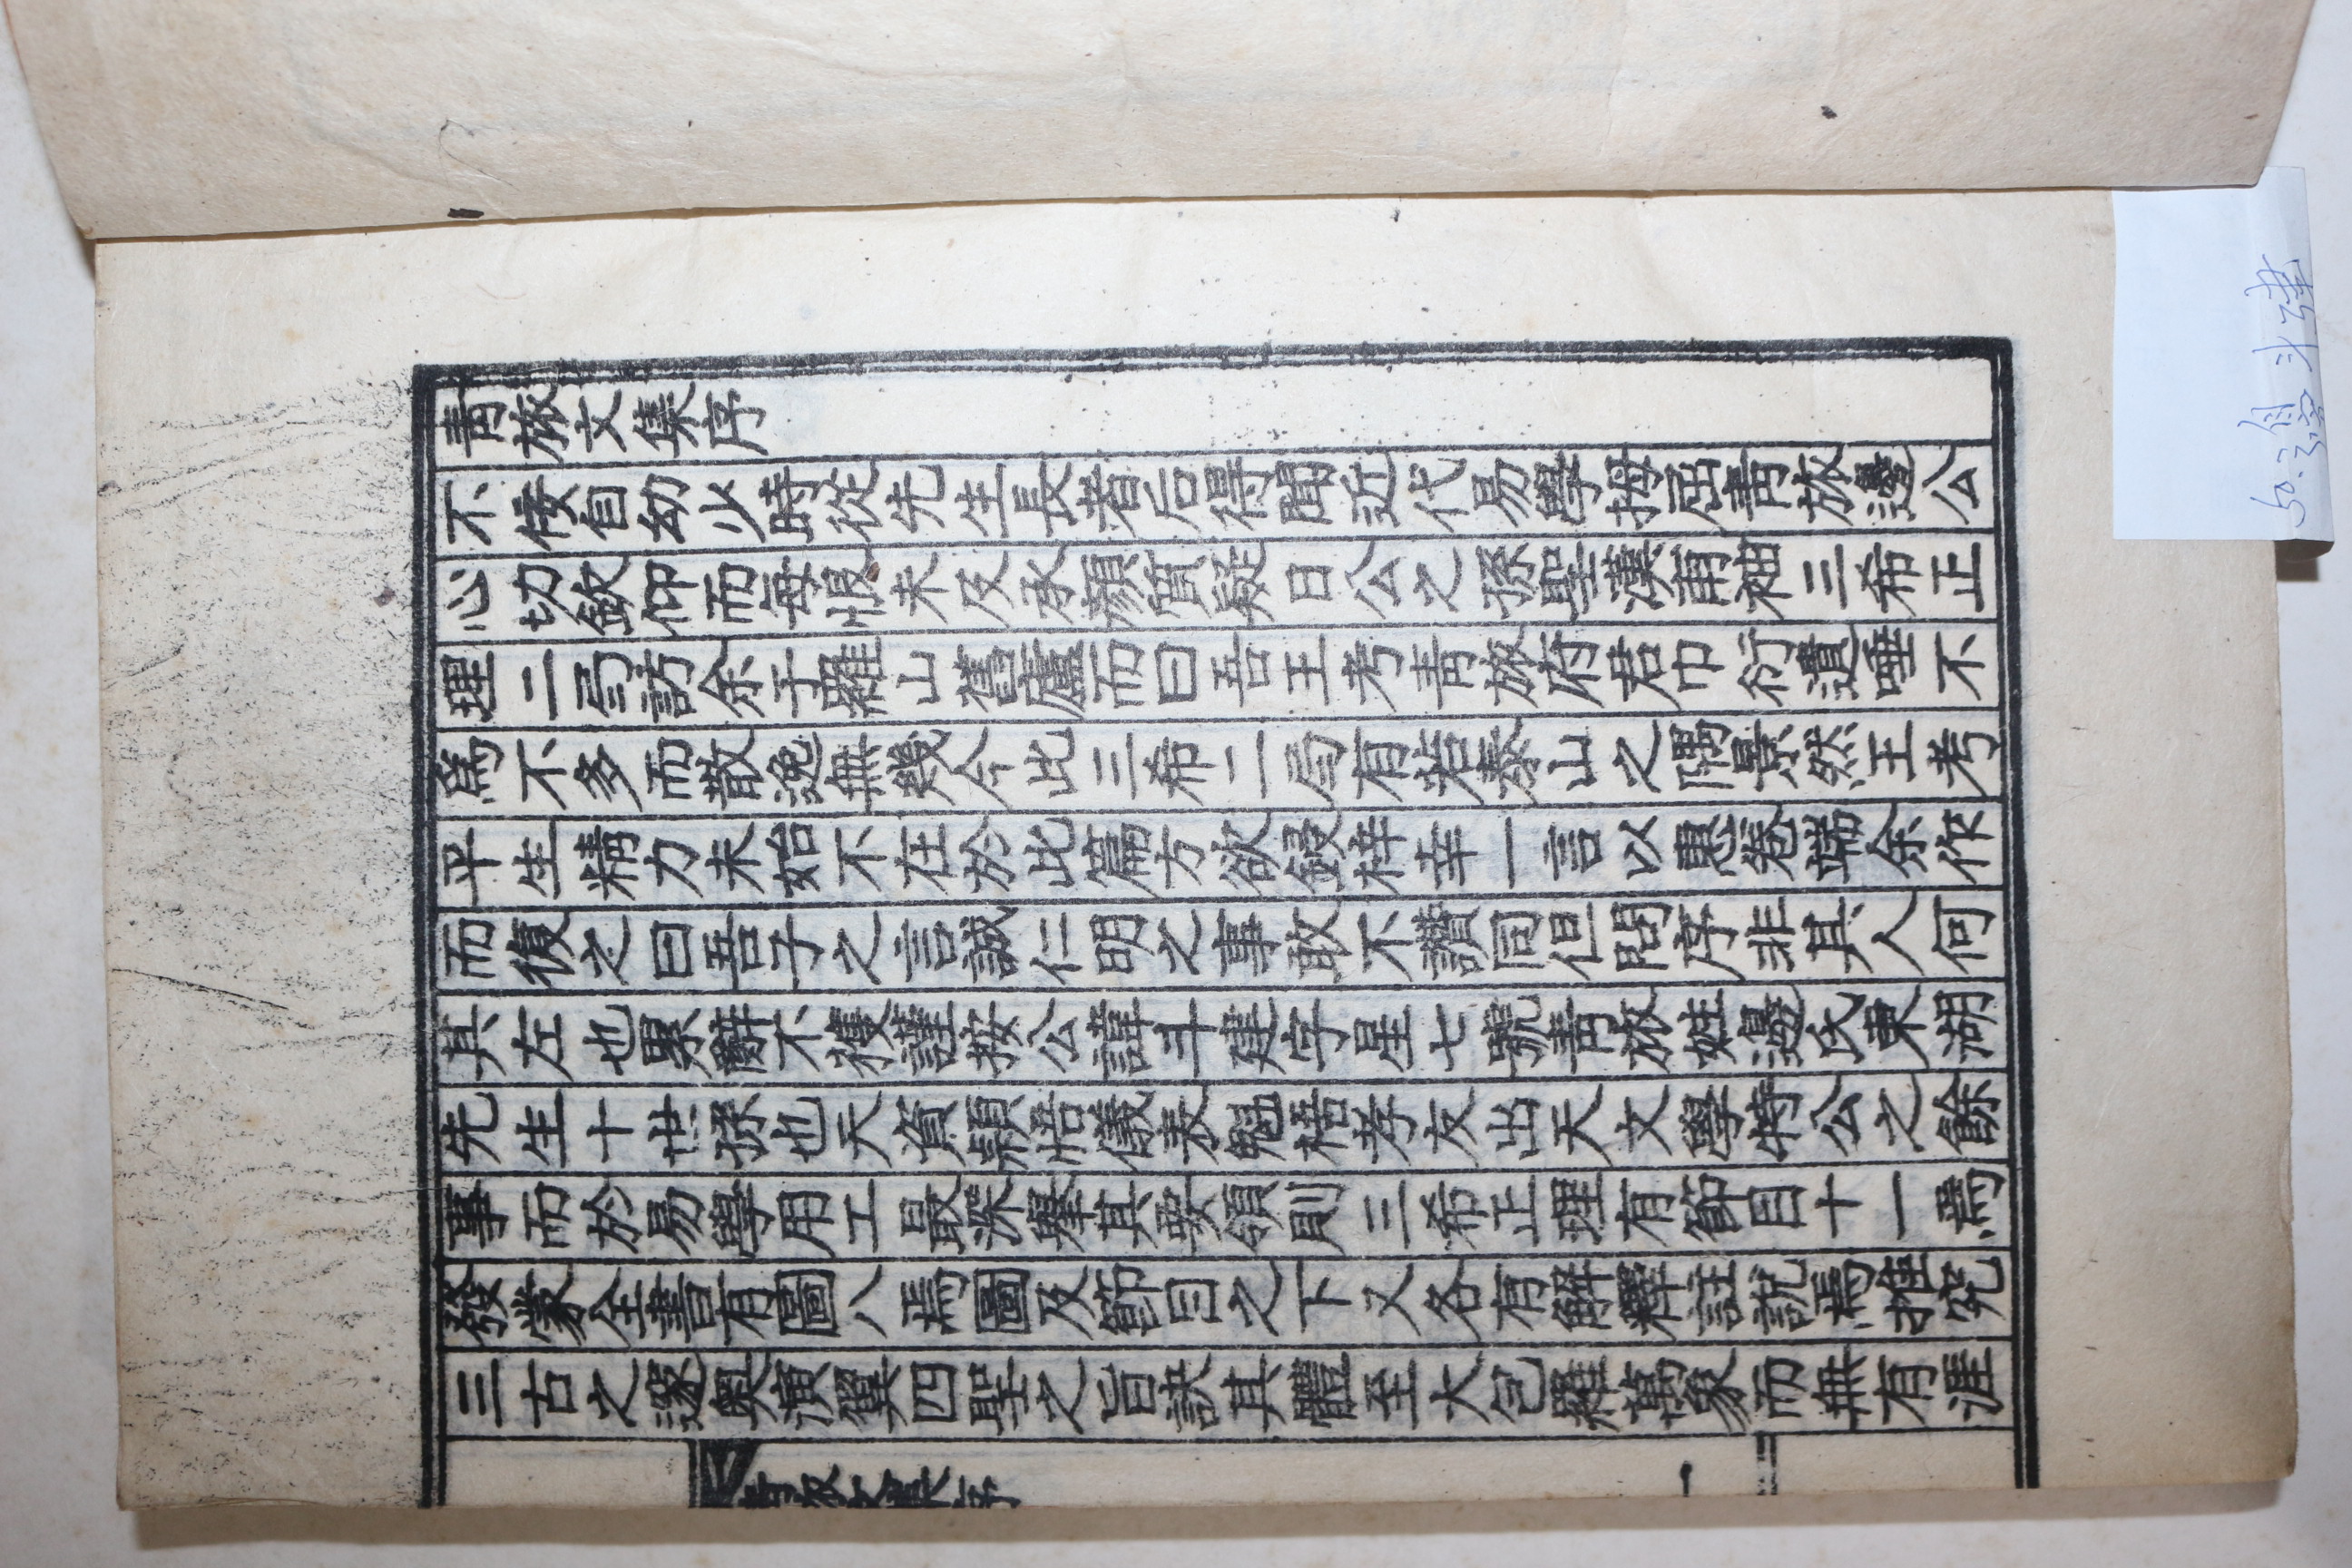 青旅文集序
不佞自幼少時從先生長者后得聞近代易學搢屈青旅邊公
心切欽仰而每恨未及承顏質疑日公之孫聖漢甫袖三希正
理二弓訪余于羅山舊廬而曰吾王考青旅府君巾衍遺唾不
爲不多而散逸無幾今此三希二弓有若泰山之隅景然王考
平生精力未始不在於此篇方欲鋟梓幸一言以惠卷端余作
而復之曰吾子之言誠仁明之事敢不讚同但問序非其人何
其左也累辭不獲謹按公諱斗建字星七號青旅姓邊氏東湖
先生十世孫也天資穎悟儀表魁梧孝友出天文學特公之餘
事而於易學用工最深擧其要領則三希正理有節目十一焉
發蒙全書有圖八焉圖及節目之下又各有解釋註說焉推究
三古之邃奧演翼四聖之旨訣其體至大包羅萬象而無有涯
青旅文集序 一
50.3邊 斗建